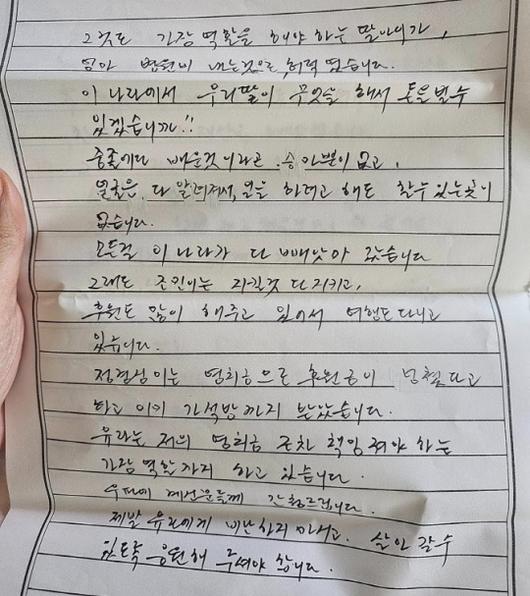 그것도 가장 역활을 해야 하는 딸아이가,
엄마 병원비 내는것으로, 허덕 였습니다.
이 나라에서 우리딸이 무엇을 해서 돈을 벌수
있겠습니까!!
중졸에다 배운것이라곤 승마뿐이 없고,
얼굴은 다 알려져서, 일을 하려고 해도 할수 있는곳이
없습니다.
모든걸 이 나라가 다 빼앗아 갔습니다
그래도 조민이는 지킬것 다 지키고,
후원도 많이 해주고 있어서 여행도 다니고
있습니다.
정경심이는 영치금으로 후원금이 넘쳤다고
하고 이미 가석방까지 받았습니다.
유라는 저의 영치금 조차 책임져야 하는
가장 역활까지 하고 있습니다.
우파에 계신분들께 간청드립니다.
제발 유라에게 비난하지 마시고, 살아 갈수
있도록 응원해 주셔야 합니다.